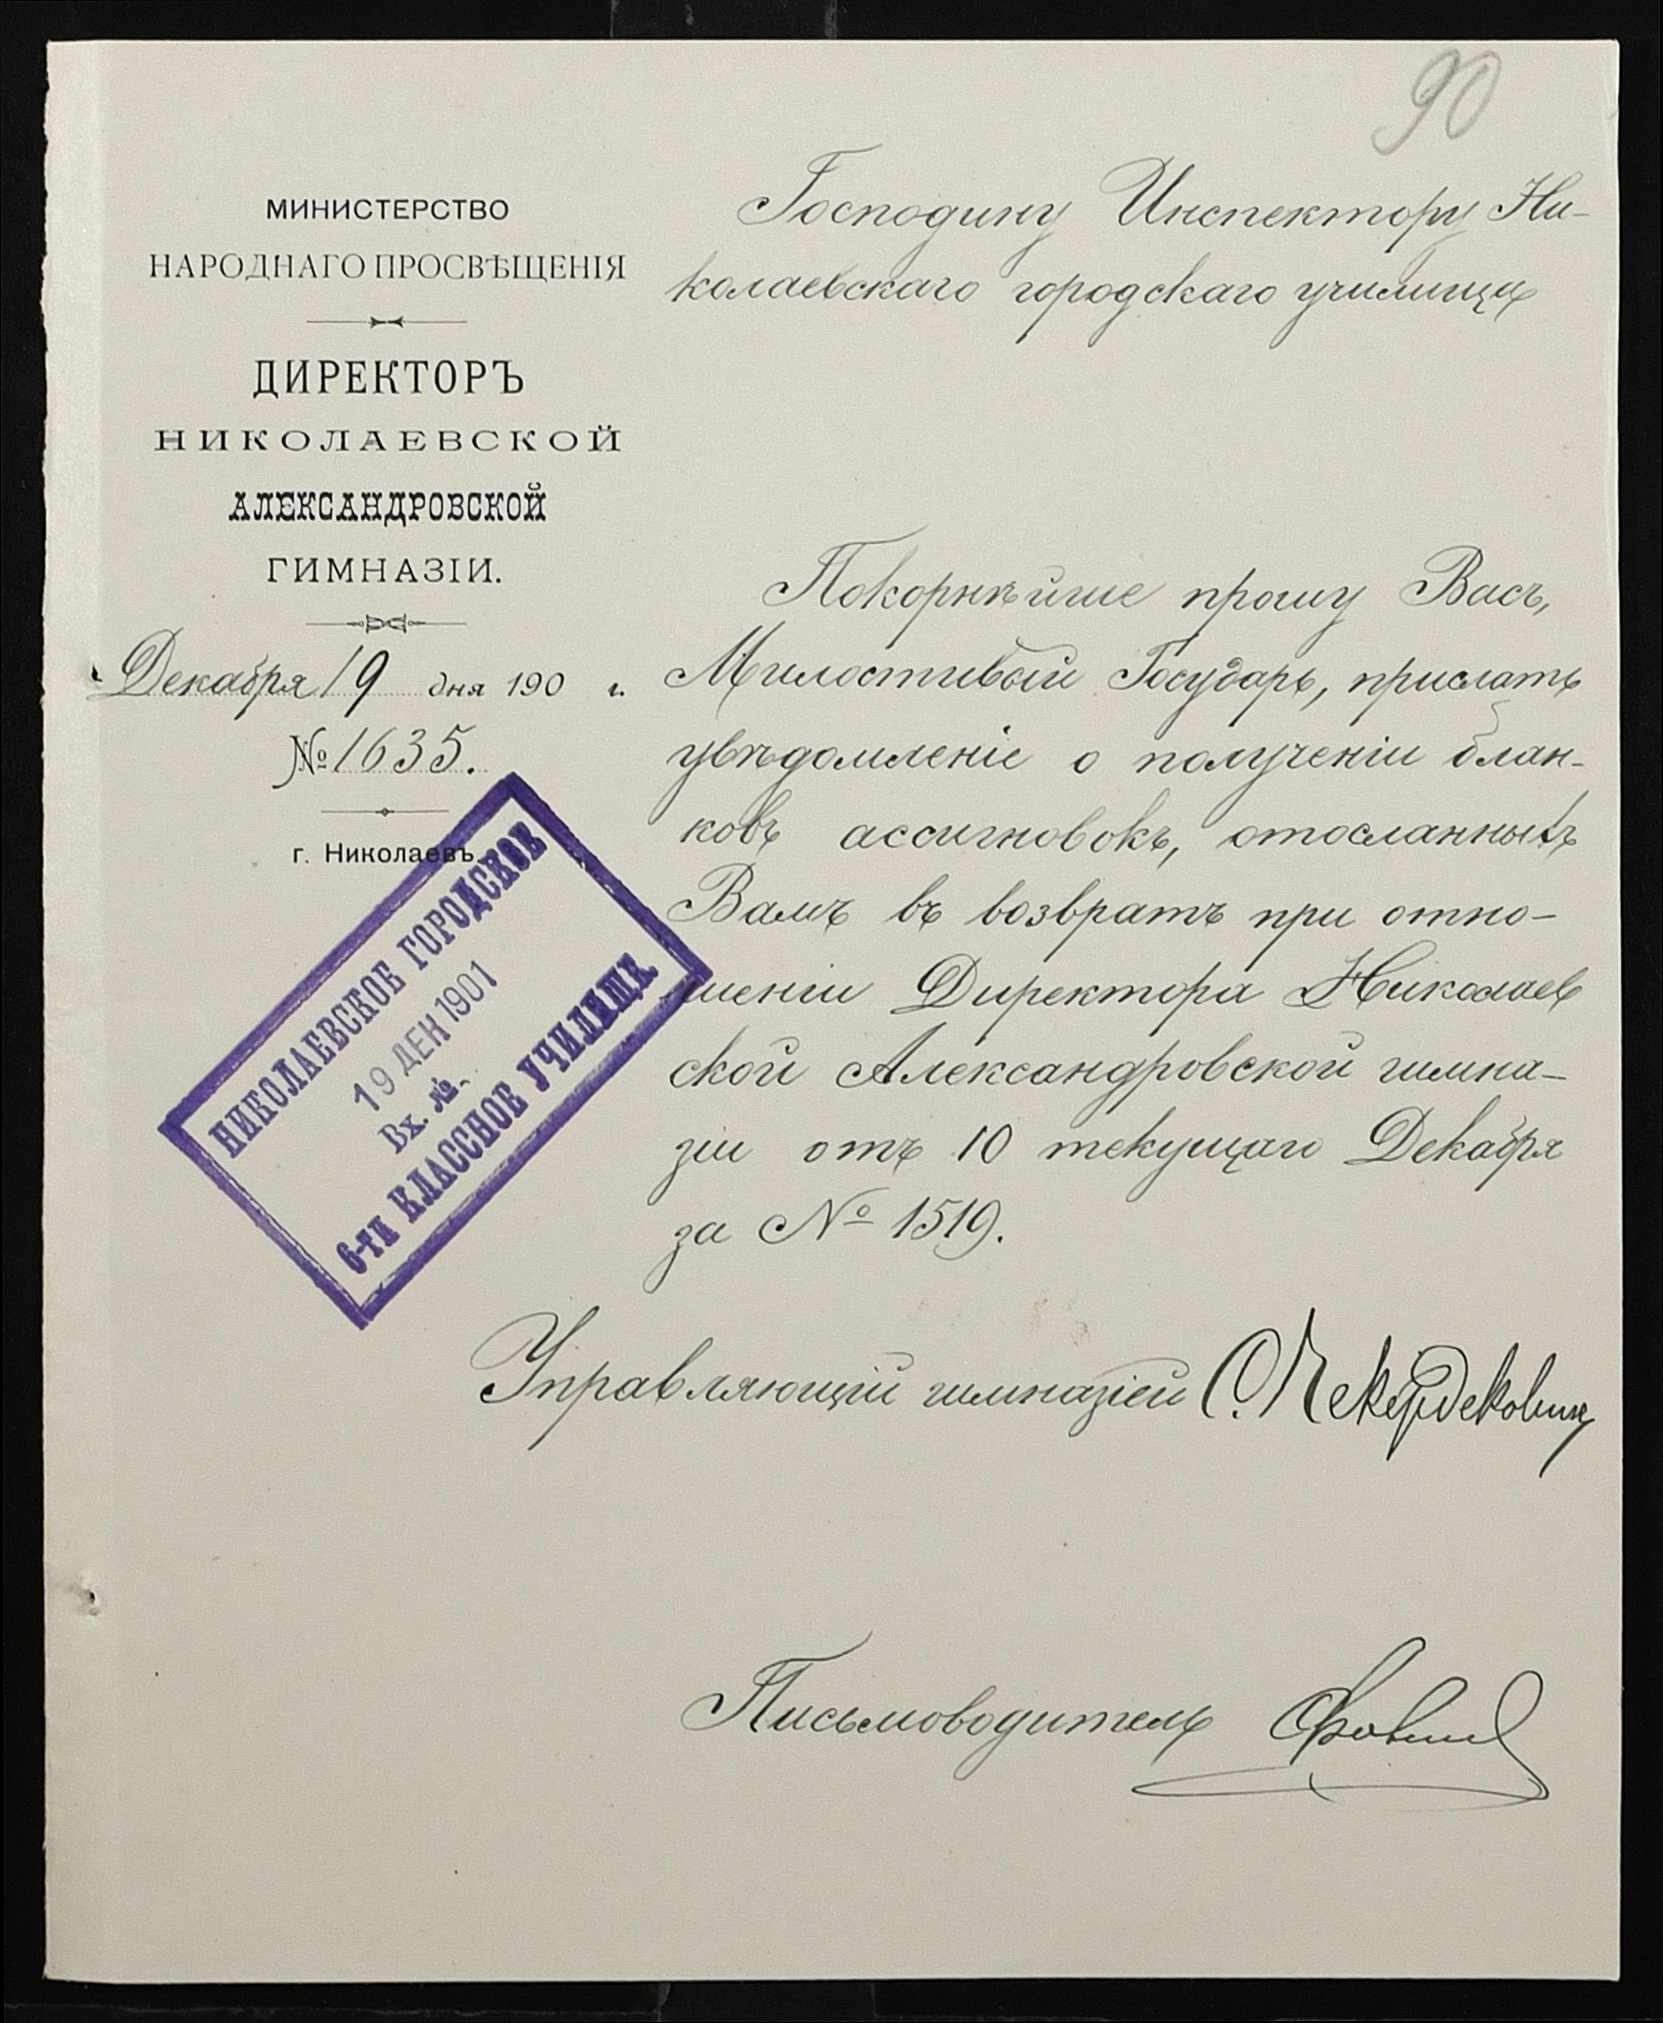 90
МИНИСТЕРСТВО
НАРОДНАГО ПРОСВѢЩЕНІЯ
ДИРЕКТОРЪ
НИКОЛАЕВСКОЙ
АЛЕКСАНДРОВСКОЙ
ГИМНАЗІИ.
Декабря 19 дня 190 г.
№ 1635.
г. Николаевъ.
НИКОЛАЕВСКОЕ ГОРОДСКОЕ
19 ДЕК 1901
Вх. №
6-ти КЛАССНОЕ УЧИЛИЩЕ
Господину Инспектору Ни-
колаевскаго городскаго училища
Покорнѣйше прошу Васъ,
Милостивый Государь, прислать
увѣдомленіе о полученіи блан-
ковъ ассигновокъ, отосланныхъ
Вамъ въ возвратъ при отно-
шеніи Директора Николаев
ской Александровской гимна-
зіи отъ 10 текущаго Декабря
за № 1519.
Управляющій гимназіей С.
Письмоводитель